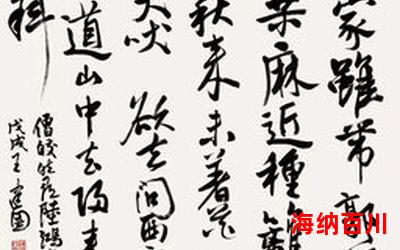 家雖带郭
桑麻近種籬
秋来未着花
犬吠欲去问西
道山中去归来
斜
僧皎然寻陸鴻
戊戌王
海纳百川